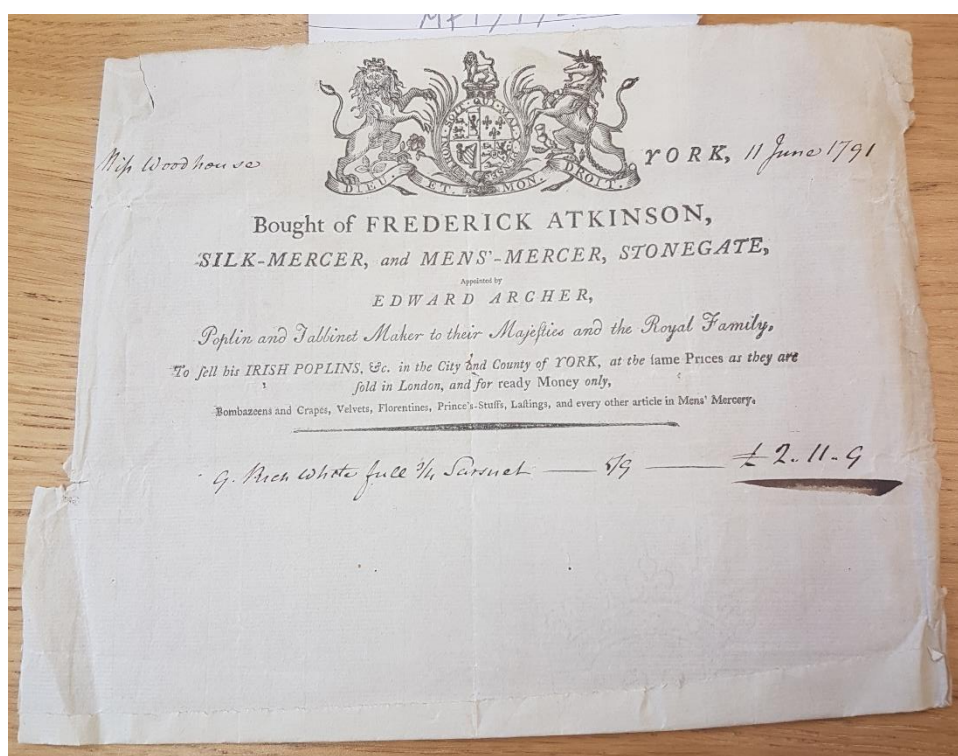 Miſs Woodhouse
YORK, 11 June 1791
DIEU. ET. MON. DROIT.
Bought of FREDERICK ATKINSON,
SILK-MERCER, and MENS'-MERCER, STONEGATE,
Appointed by
EDWARD ARCHER,
Poplin and Tabbinet Maker to their Majeſties and the Royal Family,
To ſell his IRISH POPLINS, &c. in the City and County of YORK, at the ſame Prices as they are
ſold in London, and for ready Money only,
Bombazeens and Crapes, Velvets, Florentines, Prince's-Stuffs, Laſtings, and every other article in Mens' Mercery.
9. Rich White full ¾ Sarsnet — 5/9 — £ 2.. 11.. 9